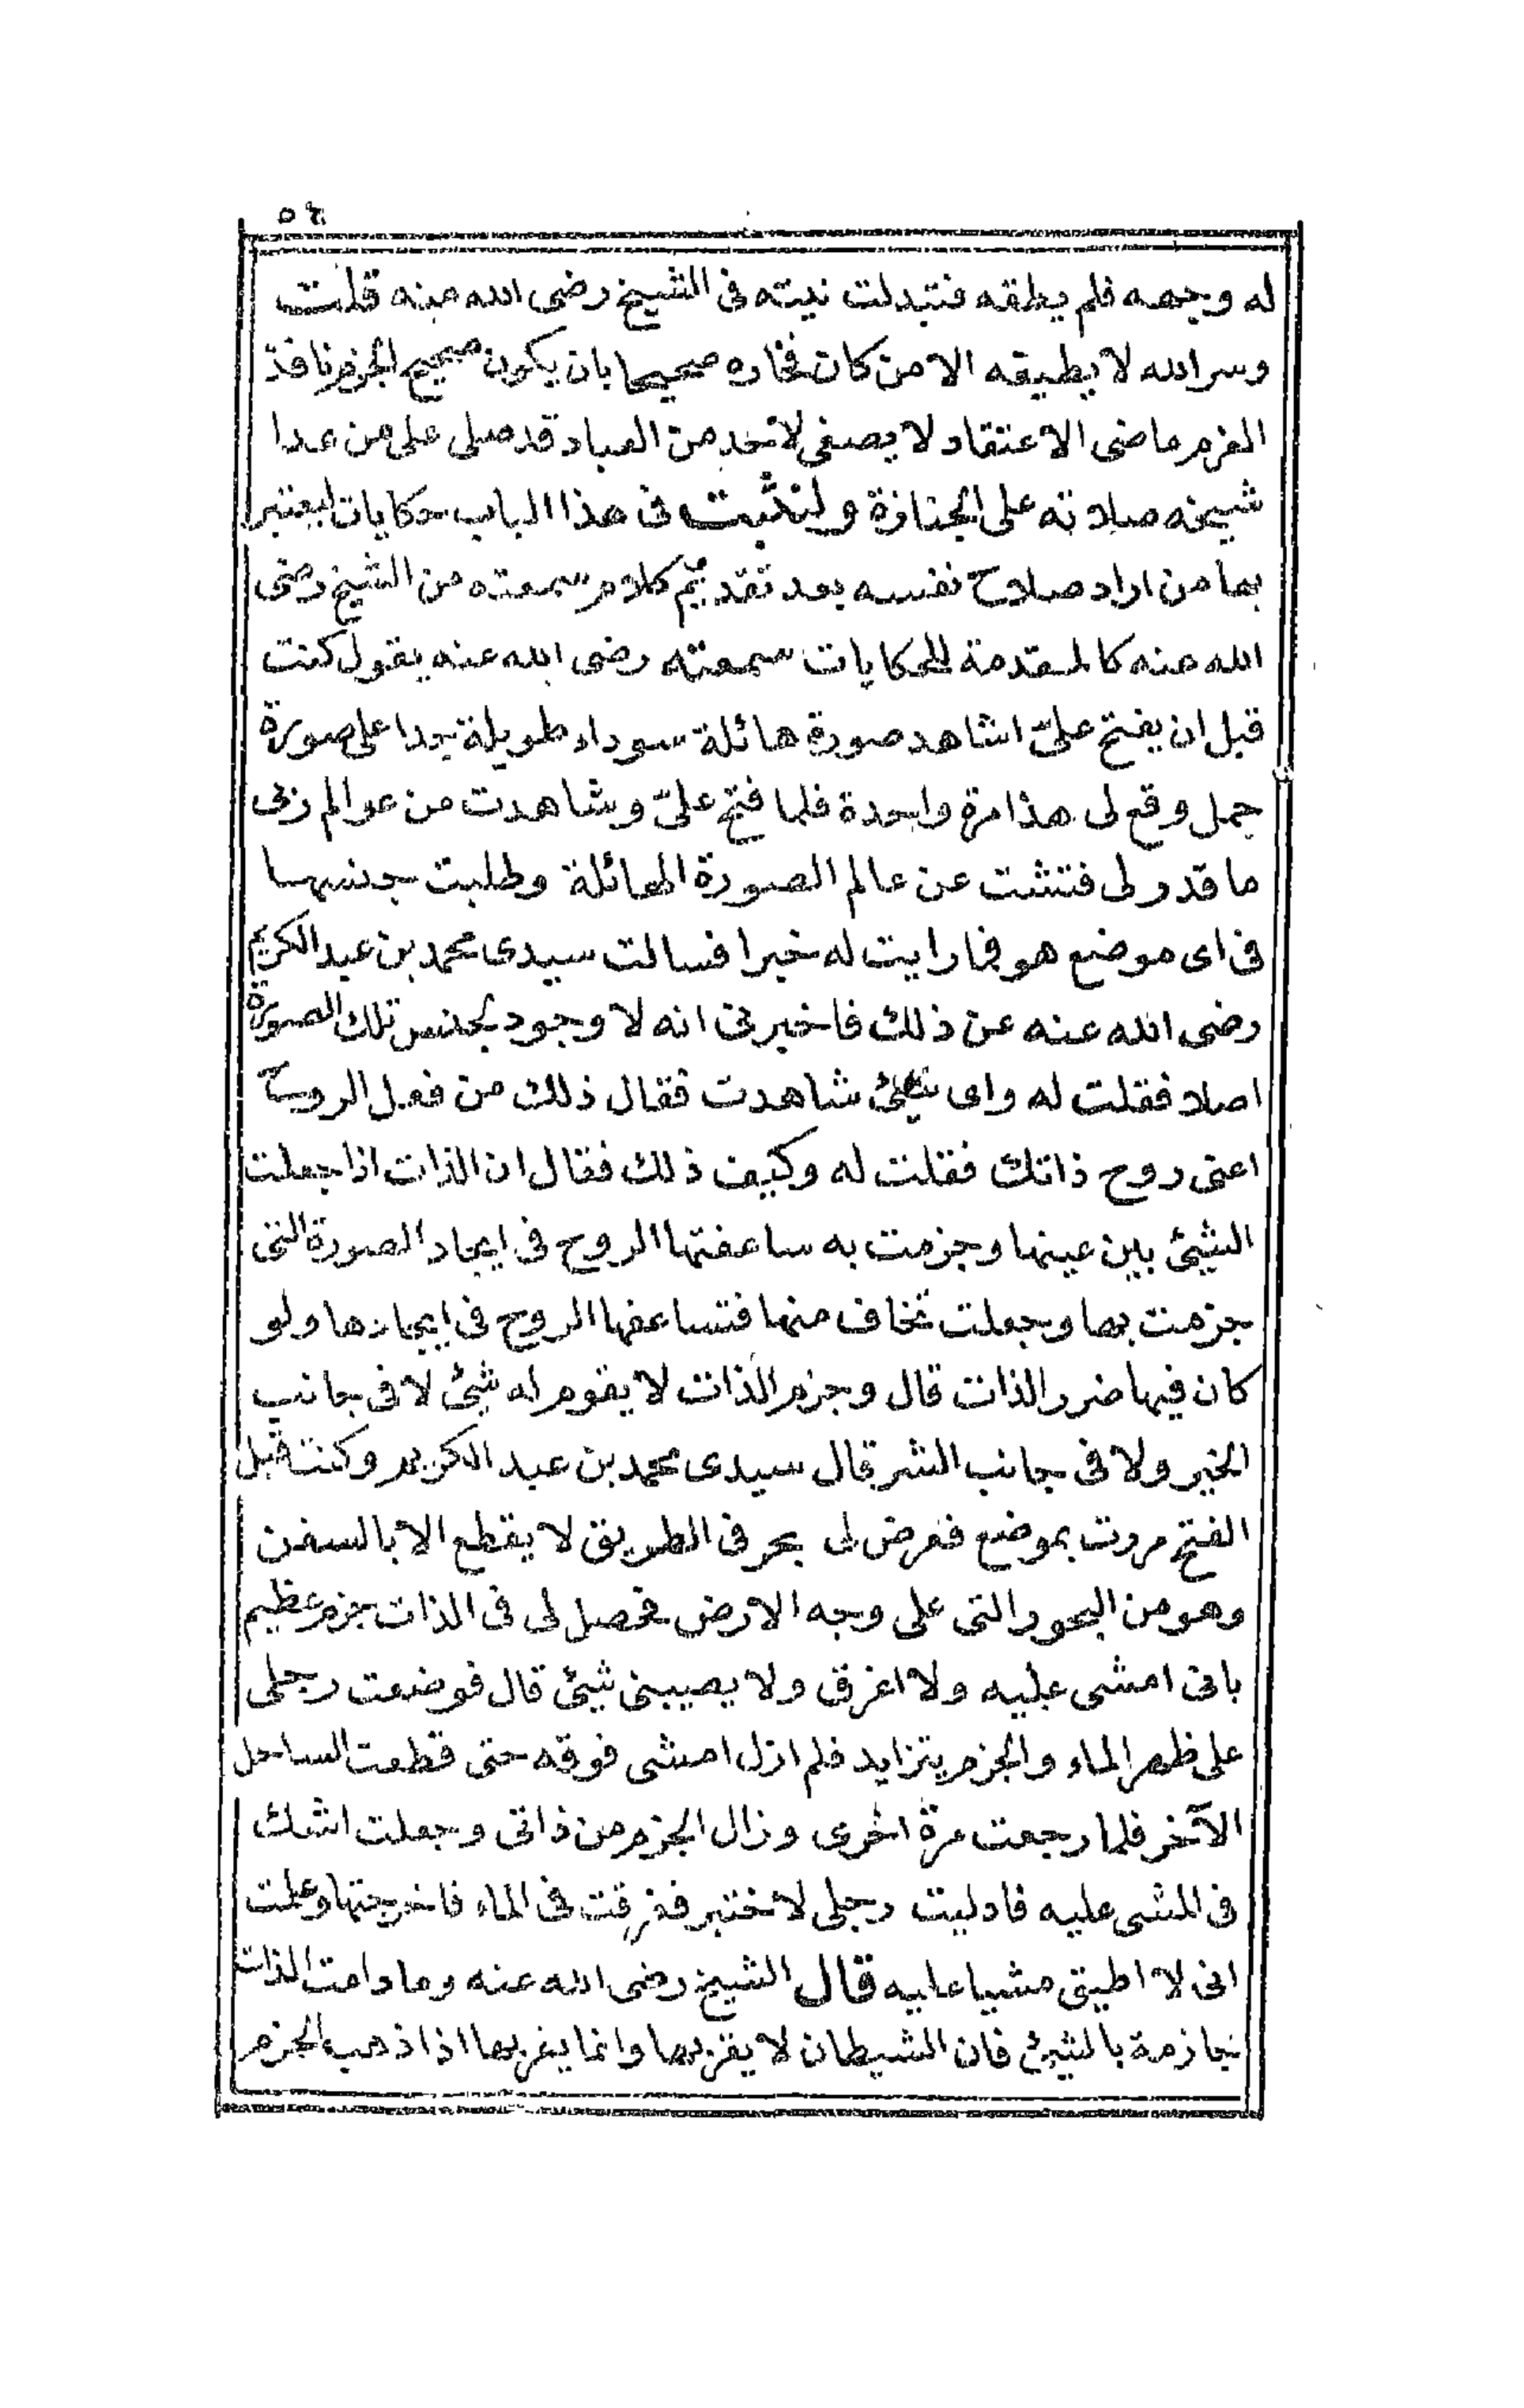 ٥٤
له وجهه فلم يطقه فتبدلت نيته فى الشيخ رضى الله عنه قلت
وسر الله لا يطيقه الا من كان فخاره صحيحا بان يكون صحيح الجزم نافذ
العزم ماضى الاعتقاد لا يصغى لاحد من العباد قد صلى على من عدا
شيخه صلاته على الجنازة ولنثبت فى هذا الباب حكايات ليعتبر
بها من اراد صلاح نفسه بعد تقديم كلام سمعته من الشيخ رضى
الله عنه كالمقدمة للحكايات سمعته رضى الله عنه يقول كنت
قبل ان يفتح علىّ اشاهد صورة هائلة سوداء طويلة جدا على صورة
جمل وقع لى هذا مرة واحدة فلما فتح علىّ وشاهدت من عوالم ربى
ما قدر لى فتشت عن عالم الصورة الهائلة وطلبت جنسها
فى اى موضع هو فما رايت له خبرا فسالت سيدى محمد بن عبد الكريم
رضى الله عنه عن ذلك فاخبرنى انه لا وجود لجنس تلك الصورة
اصلا فقلت له واى شئ شاهدت فقال ذلك من فعل الروح
اعنى روح ذاتك فقلت له وكيف ذلك فقال ان الذات اذا جعلت
الشيئ بين عينها وجزمت به ساعفتها الروح فى ايجاد الصورة التى
جزمت بها وجعلت تخاف منها فتساعفها الروح فى ايجادها ولو
كان فيها ضرر الذات قال وجزم الذات لا يقوم له شيئ لا فى جانب
الخير ولا فى جانب الشر قال سيدى محمد بن عبد الكريم وكنت قبل
الفتح مررت بموضع فعرض لى بحر فى الطريق لا يقطع الا بالسفن
وهو من البحور التى على وجه الارض فحصل لى فى الذات جزم عظيم
بانى امشى عليه ولا اغرق ولا يصيبنى شيئ قال فوضعت رجلى
على ظهر الماء والجزم يتزايد فلم ازل امشى فوقه حتى قطعت الساحل
الآخر فلما رجعت مرة اخرى وزال الجزم من ذاتى وجعلت اشك
فى المشى عليه فادليت رجلى لاختبر فغرقت فى الماء فاخرجتها وعلمت
انى لا اطيق مشيا عليه قال الشيخ رضى الله عنه وما دامت الذات
جازمة بالشيئ فان الشيطان لا يقربها وانما يقربها اذا ذهب الجزم